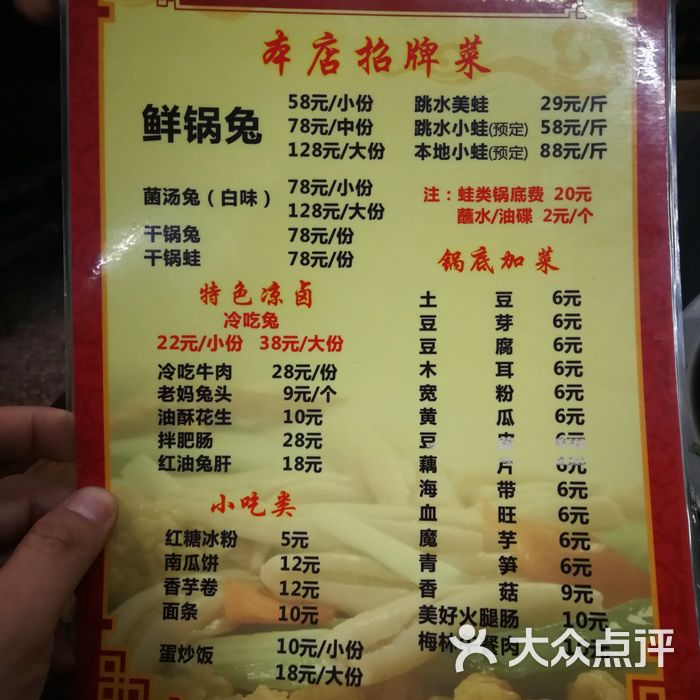 本店招牌菜
鲜锅兔
58元/小份
78元/中份
128元/大份
菌汤兔（白味）
78元/小份
128元/大份
干锅兔 78元/份
干锅蛙 78元/份
跳水美蛙 29元/斤
跳水小蛙(预定) 58元/斤
本地小蛙(预定) 88元/斤
注：蛙类锅底费 20元
蘸水/油碟 2元/个
特色凉卤
冷吃兔
22元/小份 38元/大份
冷吃牛肉 28元/份
老妈兔头 9元/个
油酥花生 10元
拌肥肠 28元
红油兔肝 18元
小吃类
红糖冰粉 5元
南瓜饼 12元
香芋卷 12元
面条 10元
蛋炒饭 10元/小份
18元/大份
锅底加菜
土豆 6元
豆芽 6元
豆腐 6元
木耳 6元
宽粉 6元
黄瓜 6元
豆 6元
藕片 6元
海带 6元
血旺 6元
魔芋 6元
青笋 6元
香菇 9元
美好火腿肠 10元
梅林 餐肉
大众点评